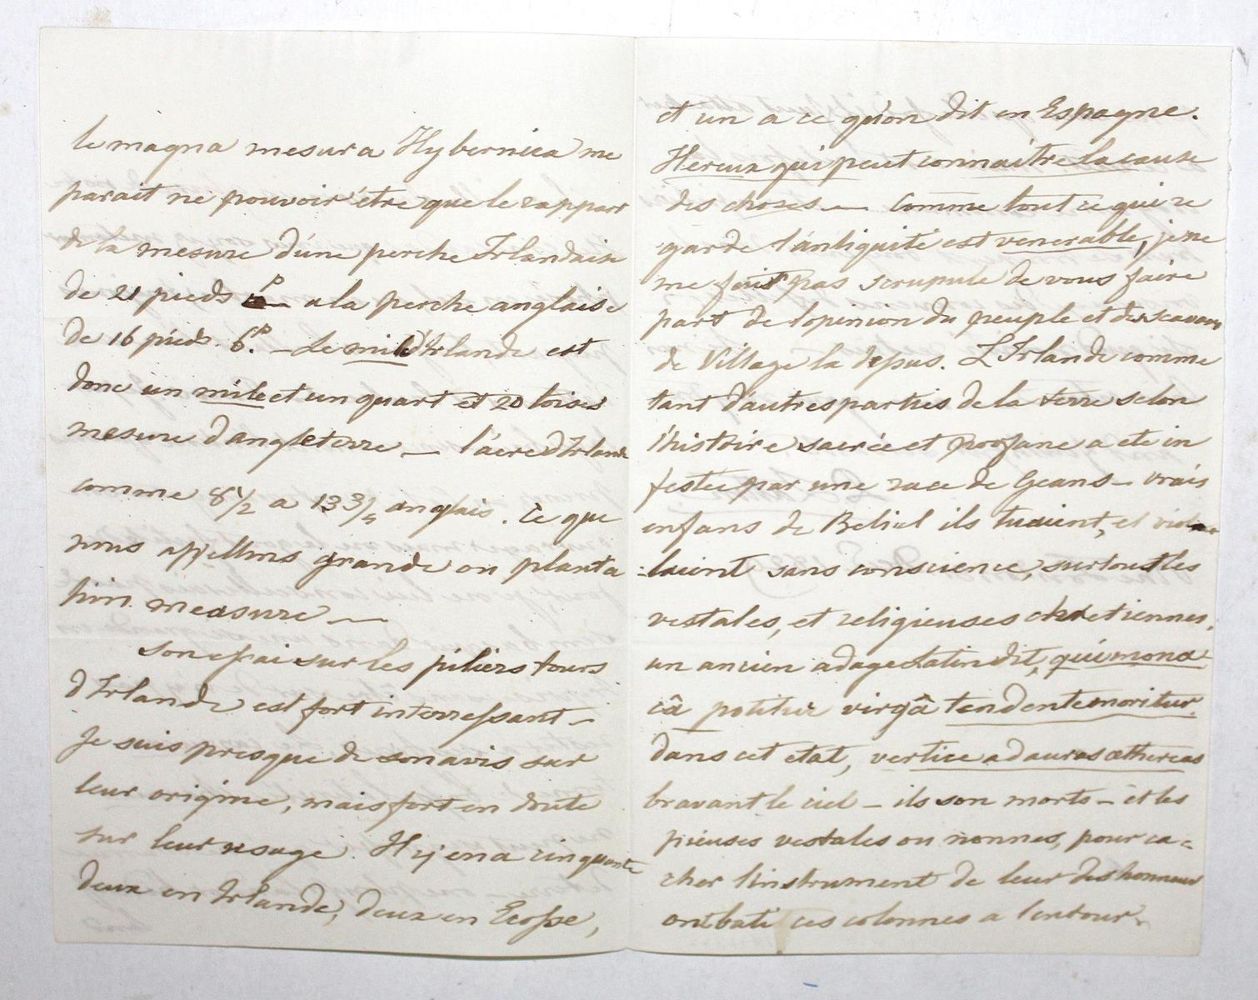 le magna mesura Hybernica me
parait ne pouvoir être que le rapport
de la mesure d'une perche Irlandaise
de 21 pieds a la perche anglaise
de 16 pieds. 6.P — Le mile d'Irlande est
donc un mile et un quart et 20 toises
mesure d'angleterre — l'acre d'Irlande
comme 8 1/2 a 13 3/4 anglais. Ce que
nous appellons grande ou planta
tion measure —
Son essai sur les piliers tours
d'Irlande est fort interressant —
Je suis presque de son avis sur
leur origine, mais fort en doute
sur leur usage. Il y en a cinquante
deux en Irlande, deux en Ecosse,
et un a ce qu'on dit en Espagne.
Hereux qui peut connaitre la cause
des choses — Comme tout ce qui re
garde l'antiquité est venerable, je ne
me fais pas scrupule de vous faire
part de l'opinion du peuple et des scavans
de Village la depus. L'Irlande comme
tant d'autres parties de la terre selon
l'histoire sacrée et profane a ete in
festée par une race de Geans — vrais
enfans de Belial ils tuaient, et viol
laient sans conscience, surtout les
vestales, et religieuses chretiennes,
un ancien adage Latin dit, qui mona
câ potitur virgâ tendente moritur.
dans cet etat, vertice ad auras æthereas
bravant le ciel — ils son morts — et les
pieuses vestales ou nonnes, pour ca=
cher l'instrument de leur deshonneur
ont bati ces colonnes a l'entour.